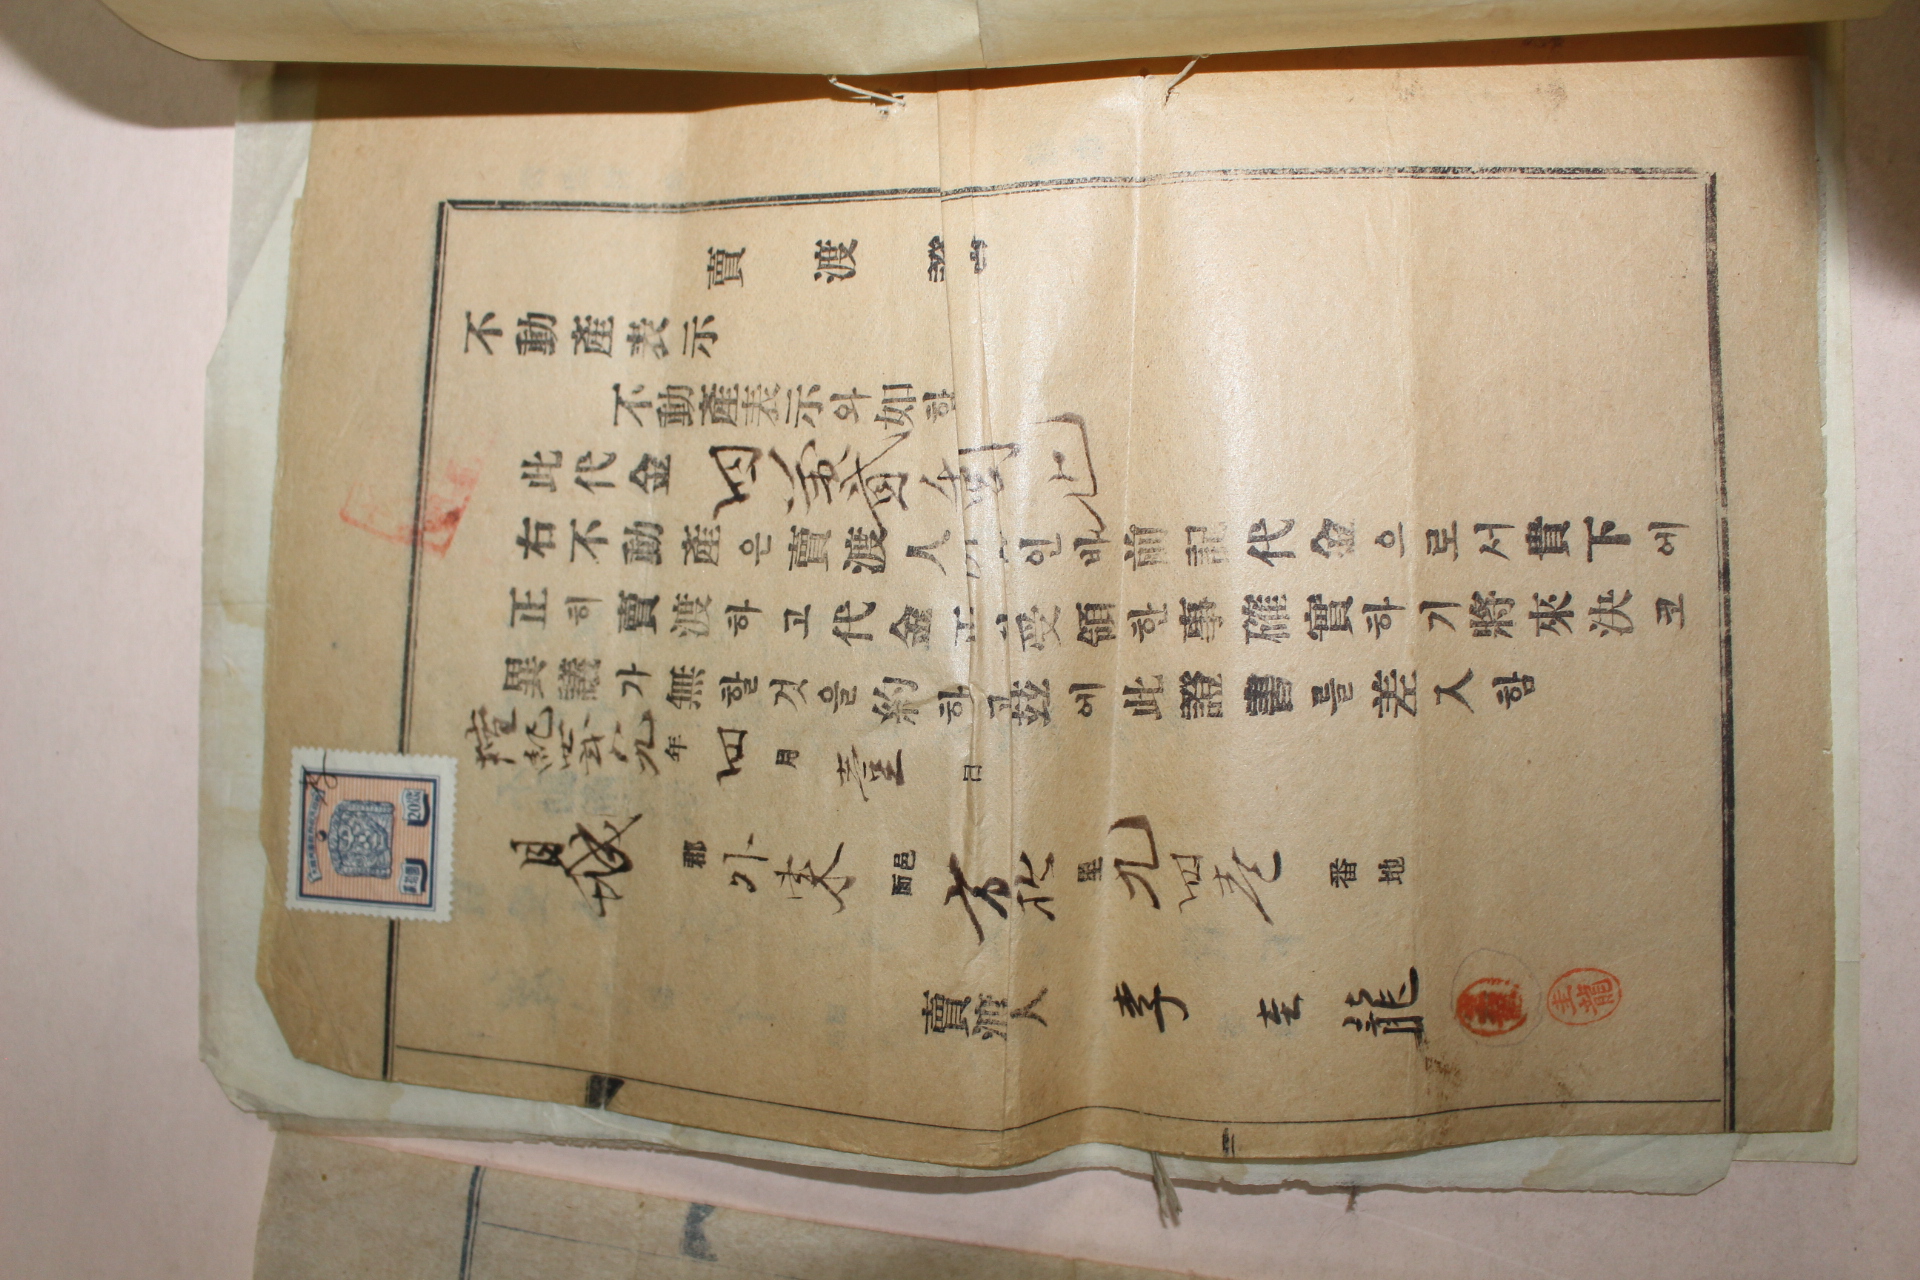 賣渡證書
不動産表示
不動産表示와如함
此代金 四萬貳 圜也
右不動産은賣渡人 인바前記代金으로서貴下에
正히賣渡하고代金正히受領한事確實하기將來決코
異議가無할것을約하고玆에此證書를差入함
檀紀四貳八九年四月壹日
月城郡外東邑面方於里九四壱番地
賣渡人 李圭龍
圭龍
貳拾圜 20